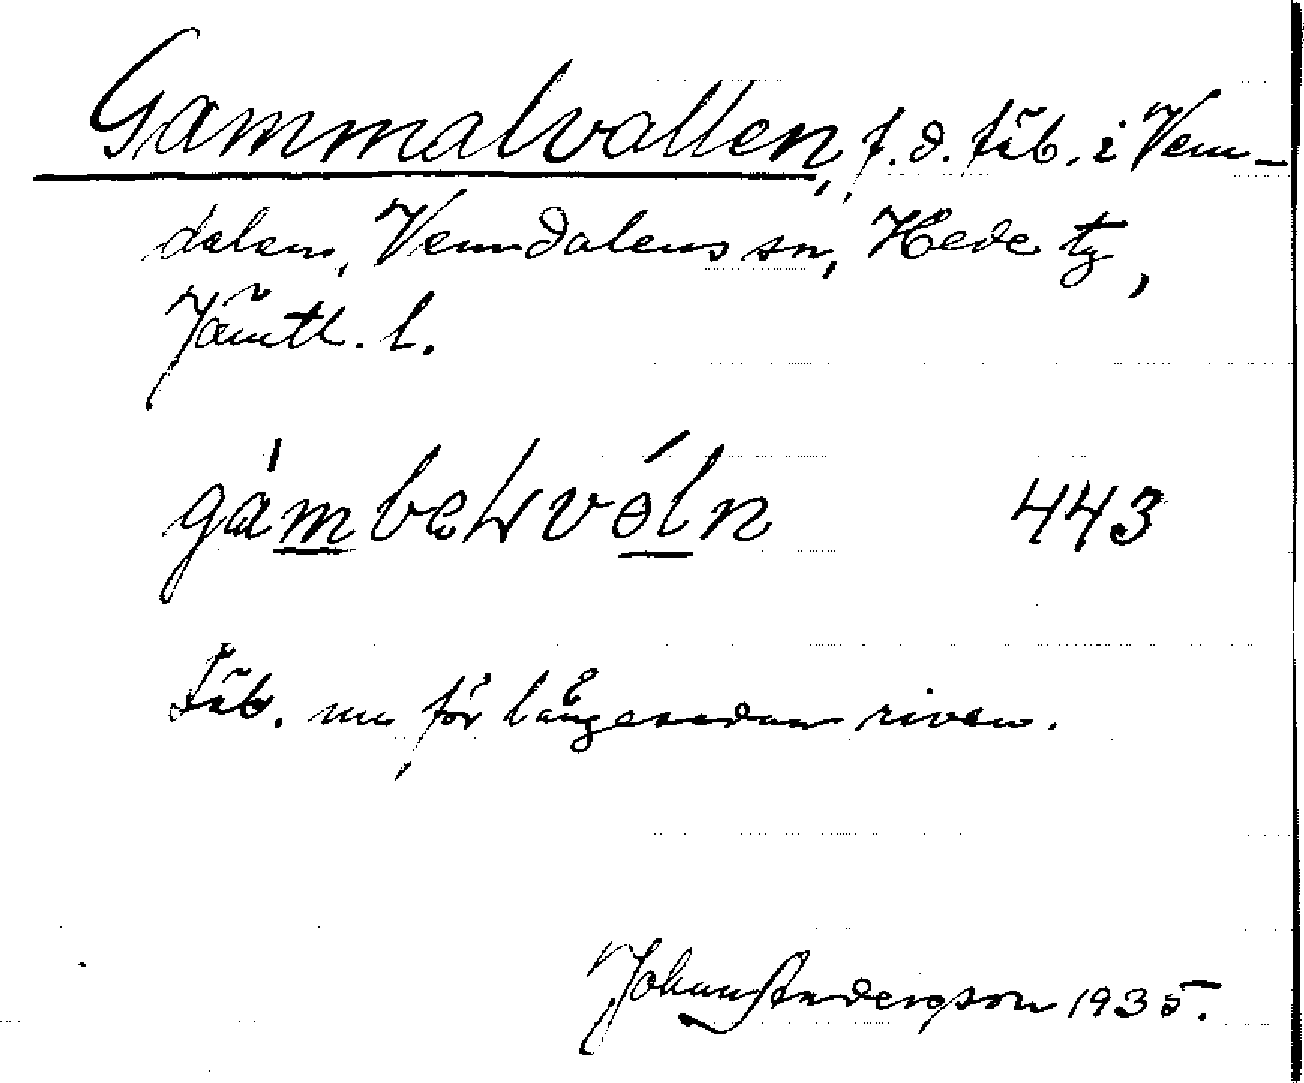 Gammalvallen, f.d. fäb. i Vem-
dalen, Vemdalens sn, Hede tg,
Jämtl. l.
443
Fäb. nu för längesedan riven.
Johan Anderson 1935.